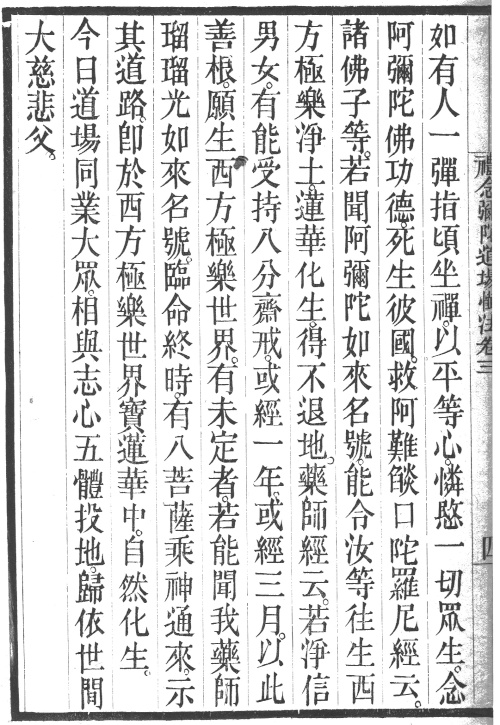 禮念彌陀道場懺法卷三
四
如有人一彈指頃坐禪。以平等心。憐愍一切眾生。念
阿彌陀佛功德。死生彼國。救阿難燄口陀羅尼經云。
諸佛子等。若聞阿彌陀如來名號。能令汝等往生西
方極樂淨土。蓮華化生。得不退地。藥師經云。若淨信
男女。有能受持八分齋戒。或經一年。或經三月。以此
善根。願生西方極樂世界。有未定者。若能聞我藥師
瑠瑠光如來名號。臨命終時。有八菩薩乘神通來。示
其道路。卽於西方極樂世界寶蓮華中。自然化生。
今日道場同業大眾。相與志心五體投地。歸依世間
大慈悲父。